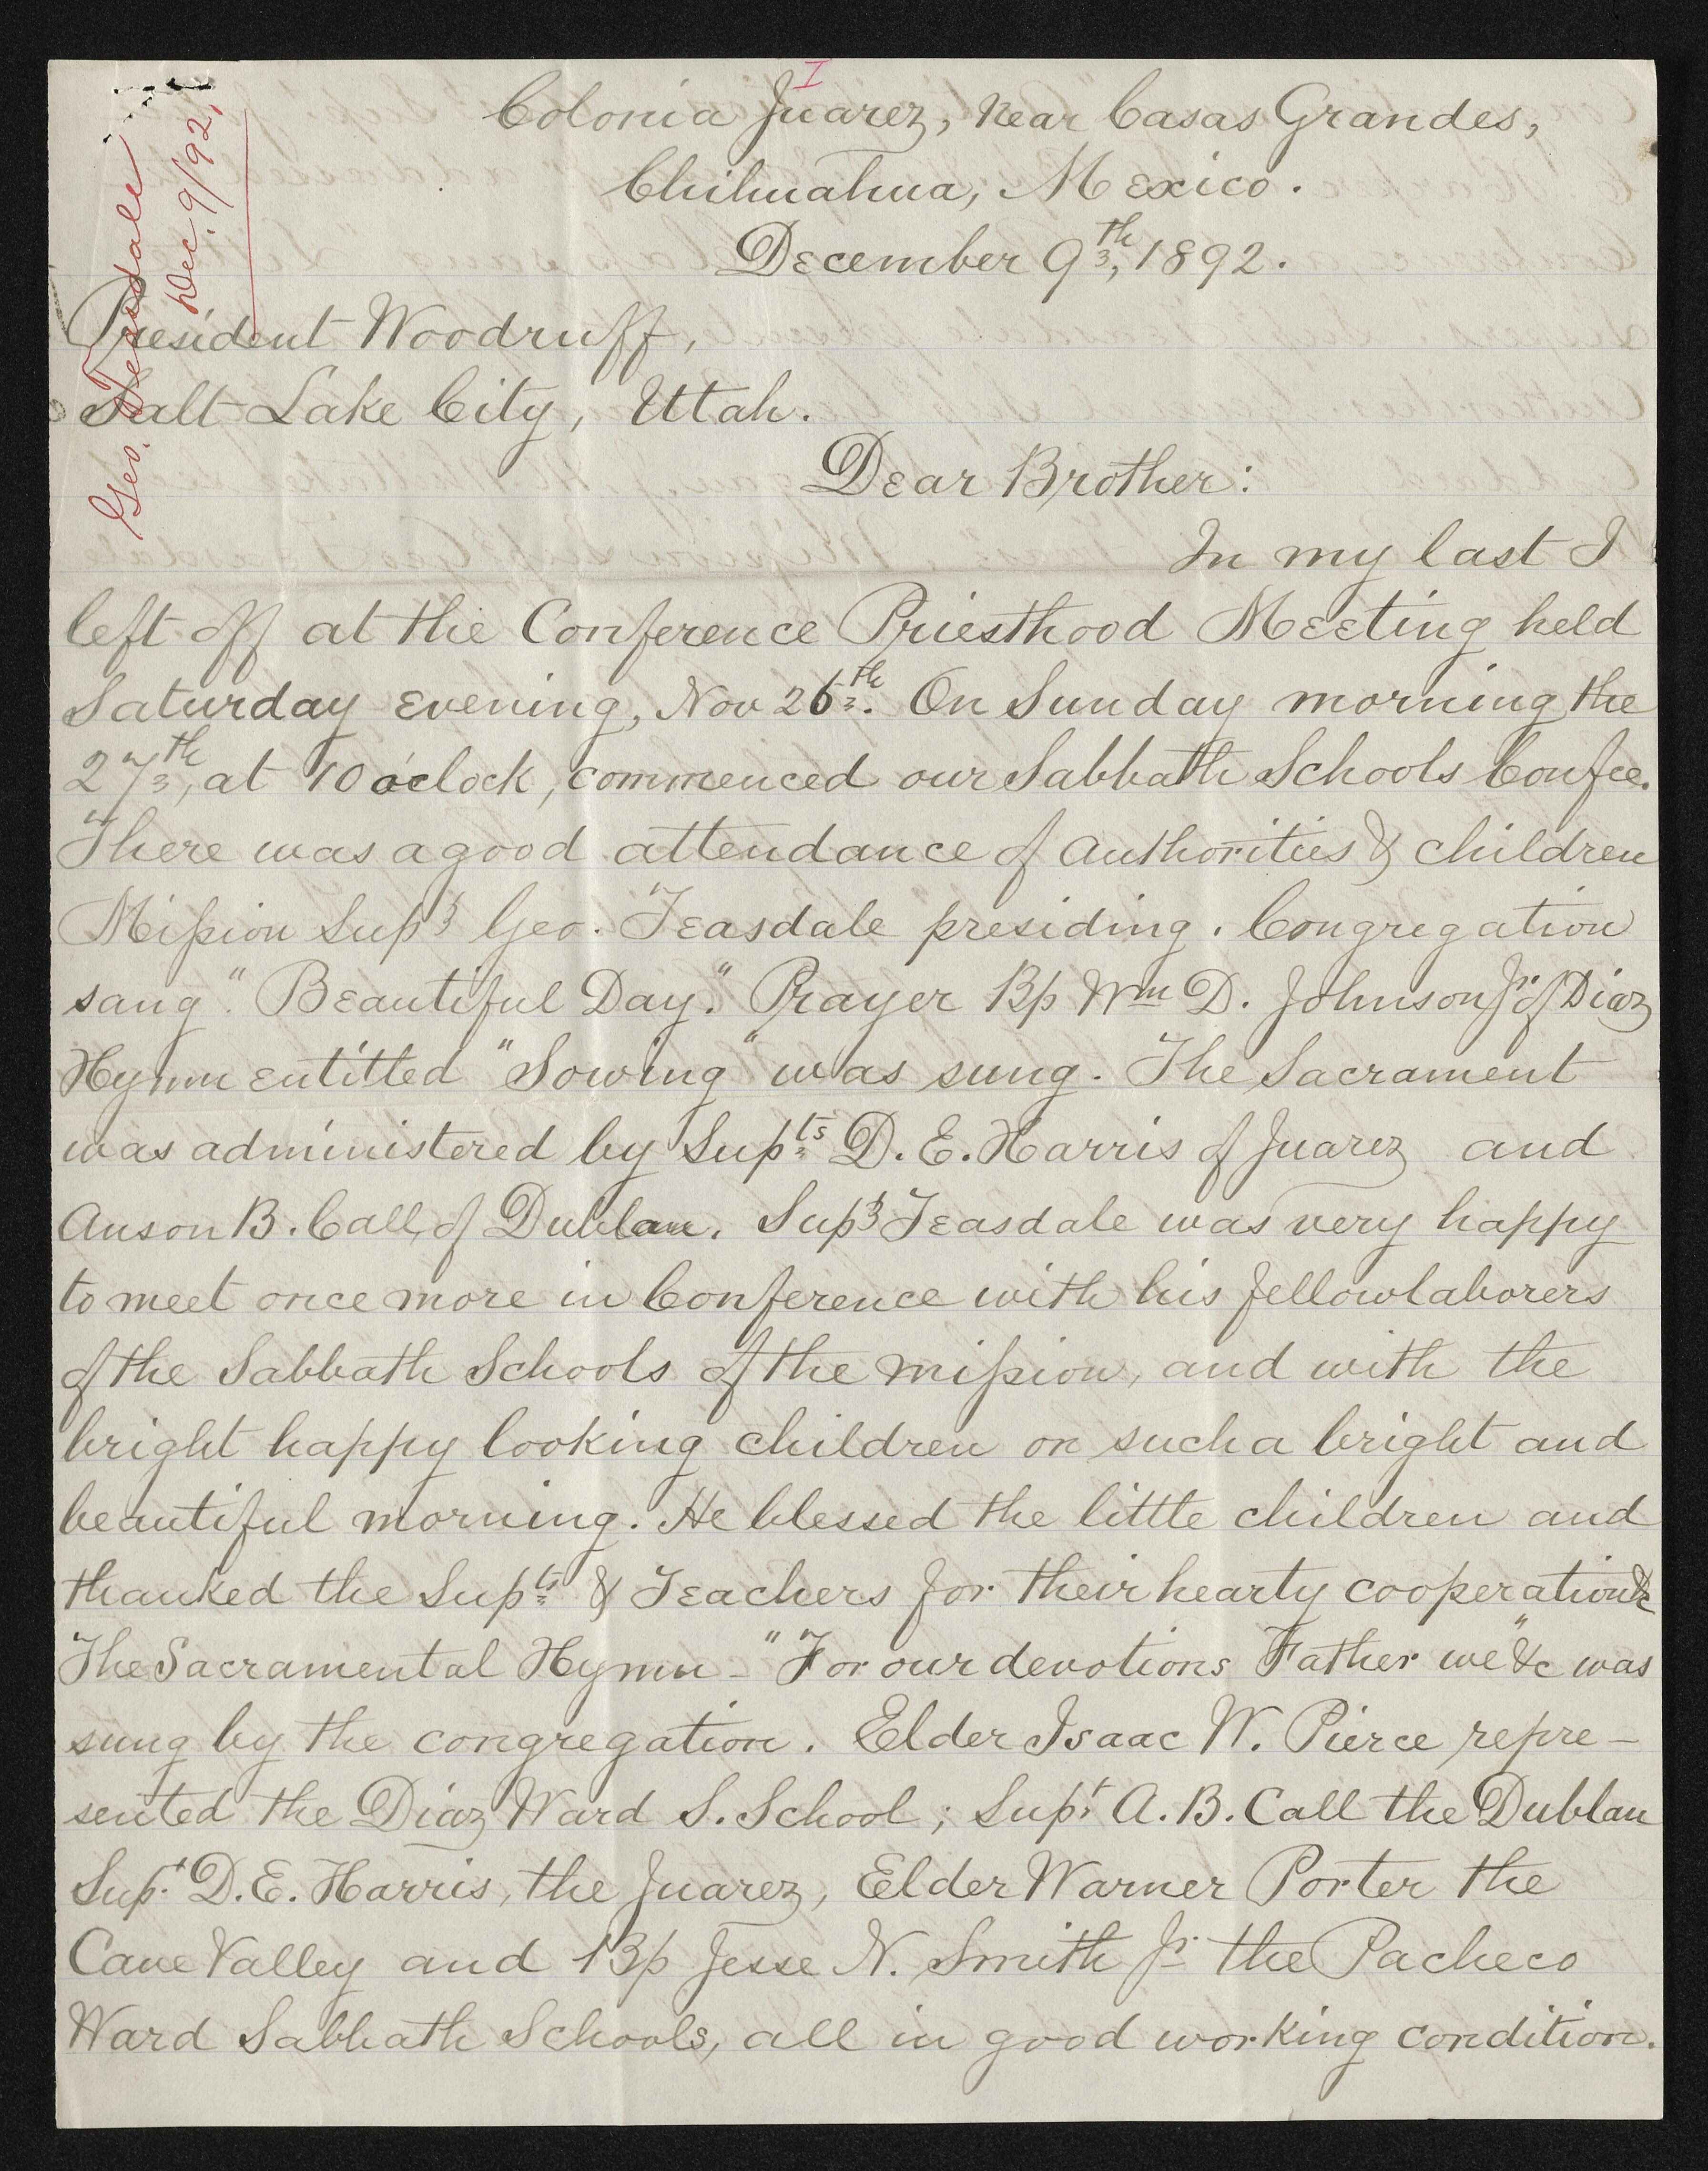 I
Colonia Juarez, Near Casas Grandes,
Chihuahua, Mexico.
December 9th, 1892.
Geo. Teasdale
Dec. 9/92.
President Woodruff,
Salt Lake City, Utah.
Dear Brother:
In my last I
left off at the Conference Priesthood Meeting held
Saturday evening, Nov 26th. On Sunday morning the
27th, at 10 o'clock, commenced our Sabbath Schools Confce.
There was a good attendance of authorities & children
Mission Supt Geo. Teasdale presiding. Congregation
sang "Beautiful Day." Prayer Bp Wm D. Johnson Jr of Diaz
Hymn entitled "Sowing" was sung. The Sacrament
was administered by Supts D. E. Harris of Juarez and
Anson B. Call, of Dublan. Supt Teasdale was very happy
to meet once more in Conference with his fellowlaborers
of the Sabbath Schools of the mission, and with the
bright happy looking children on such a bright and
beautiful morning. He blessed the little children and
thanked the Supts & Teachers for their hearty cooperation &c
The Sacramental Hymn - "For our devotions Father we" &c was
sung by the congregation. Elder Isaac W. Pierce repre-
sented the Diaz Ward S. School; Supt A. B. Call the Dublan
Supt D. E. Harris, the Juarez, Elder Warner Porter the
Cave Valley and Bp Jesse N. Smith Jr the Pacheco
Ward Sabbath Schools, all in good working condition.